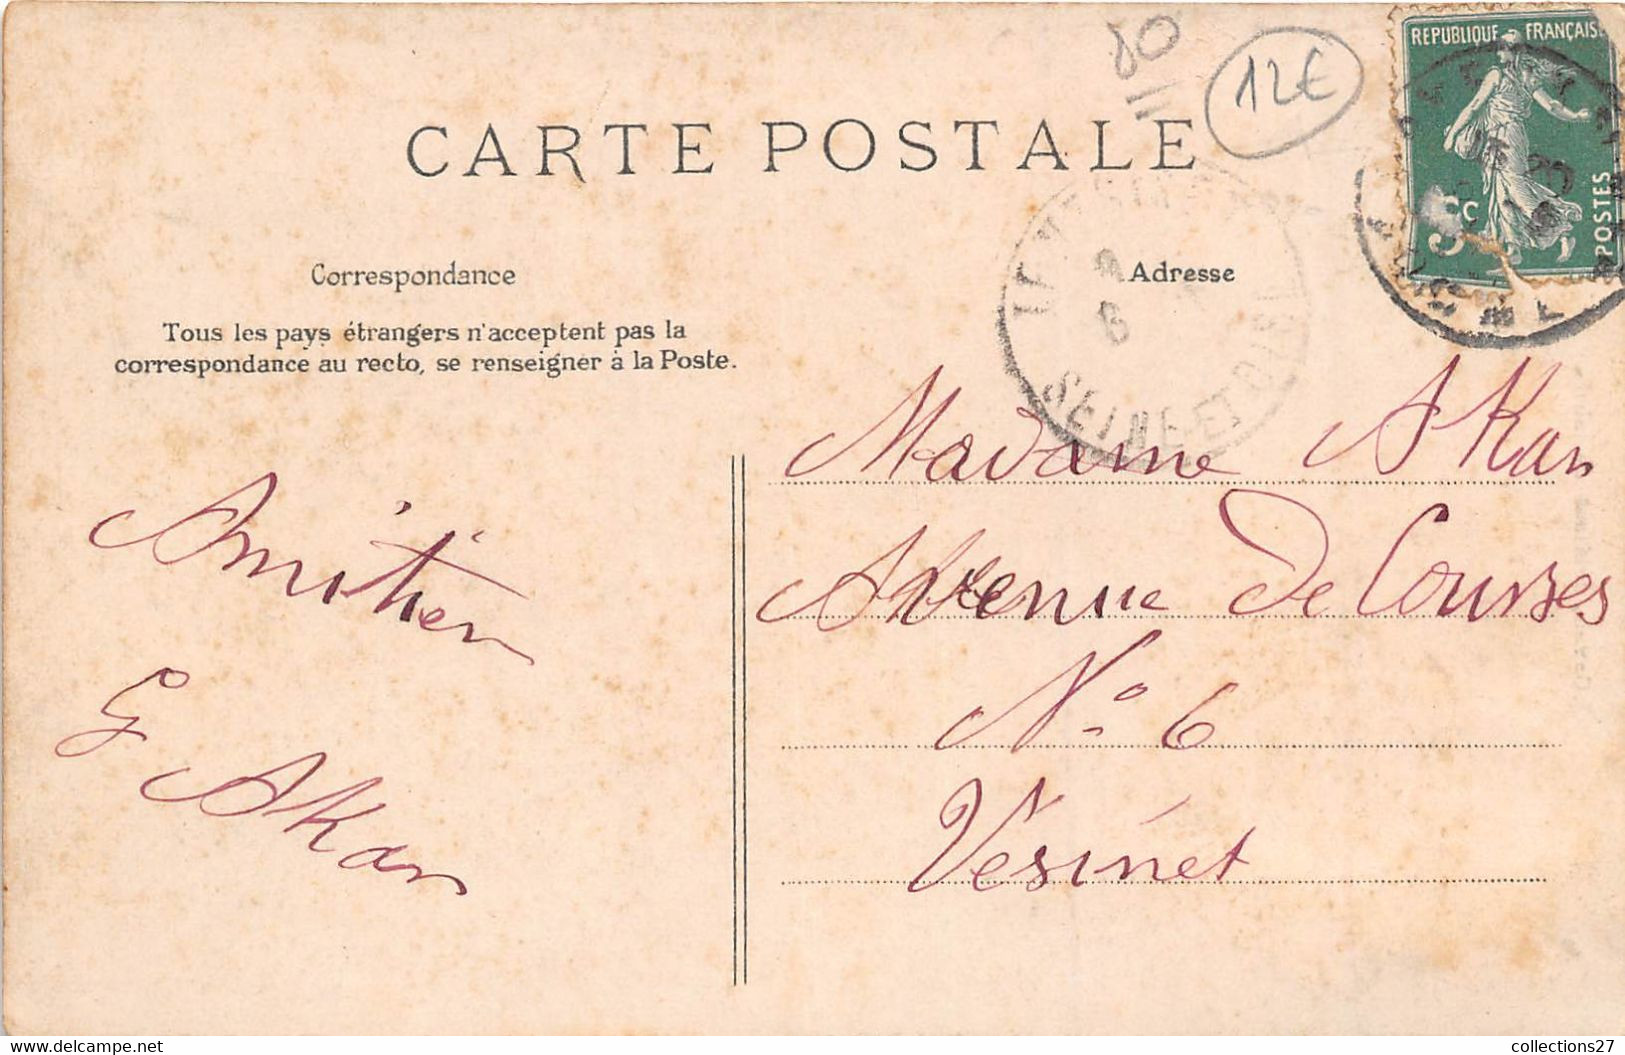 80
12€
REPUBLIQUE FRANÇAISE
5c
POSTES
CARTE POSTALE
LE VESINET
9
6
SEINE-ET-OISE
Correspondance
Adresse
Tous les pays étrangers n'acceptent pas la
correspondance au recto, se renseigner à la Poste.
Amitier
G
AKan
Madame AKan
Avenue De Courses
No 6
Vésinet
delcampe.net
collections27